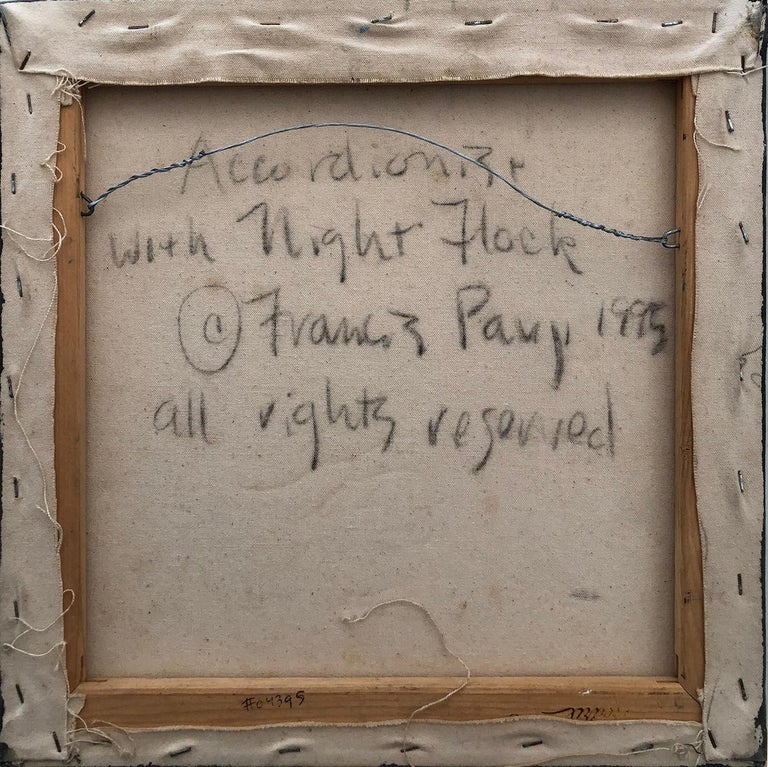 Accordionist
with Night Flock
© Francis Pavy 1995
all rights reserved
#04395